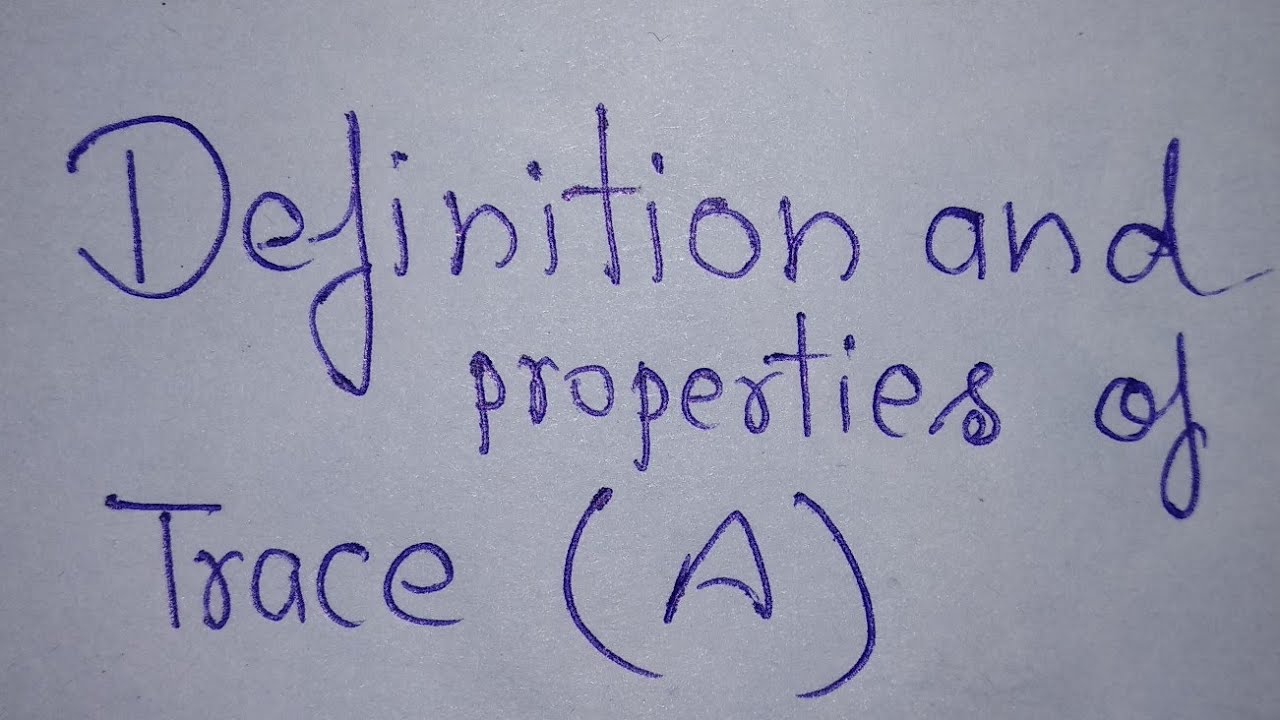 Definition and
properties of
Trace (A)